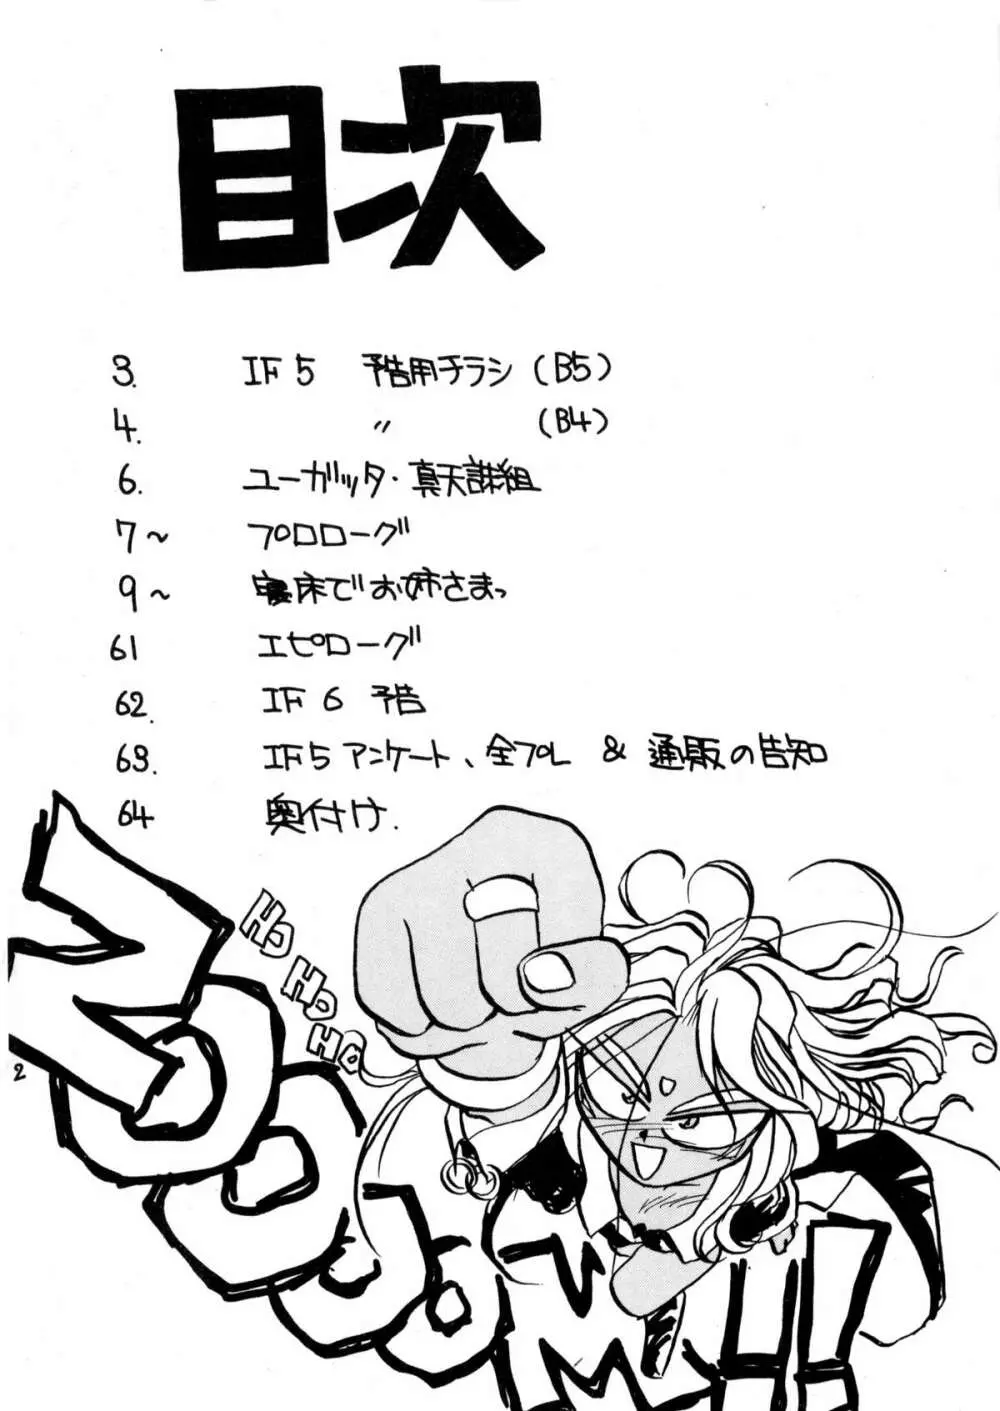 目次
3. IF5 予告用チラシ (B5)
4. 〃 (B4)
6. ユーガッタ・真天誅組
7～ プロローグ
9～ 寝床でお姉さまっ
61 エピローグ
62. IF6 予告
63. IF5アンケート、全プレ & 通販の告知
64 奥付け.
HO HO HO
ZOOOOM!!
2